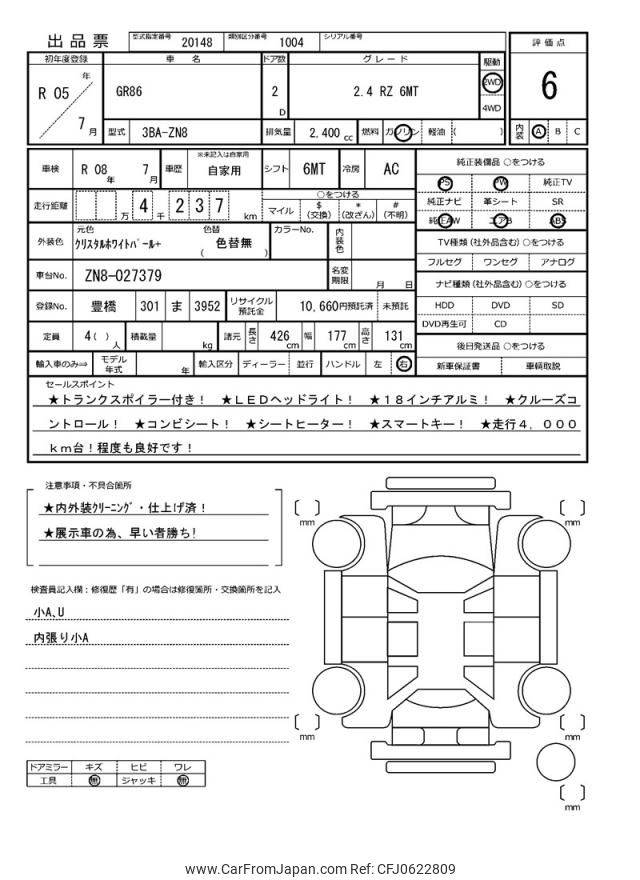 出品票 型式指定番号 20148 類別区分番号 1004 シリアル番号
初年度登録 車名 ドア数 グレード 駆動 評価点
R 05 年 7 月 GR86 2 D 2.4 RZ 6MT 2WD 4WD 6
型式 3BA-ZN8 排気量 2,400 cc 燃料 ガソリン 軽油 ( ) 内装 A B C
車検 R 08 年 7 月 車歴 ※未記入は自家用 自家用 シフト 6MT 冷房 AC 純正装備品 ○をつける
PS PW 純正TV
走行距離 万 4 千 2 3 7 km ○をつける 純正ナビ 革シート SR
マイル $ (交換) * (改ざん) # (不明) 純正AW エアB ABS
外装色 元色 クリスタルホワイトパール+ 色替 ( 色替無 ) カラーNo. 内装色 TV種類 (社外品含む) ○をつける
フルセグ ワンセグ アナログ
車台No. ZN8-027379 名変期限 月 日 ナビ種類 (社外品含む) ○をつける
登録No. 豊橋 301 ま 3952 リサイクル預託金 10,660円預託済 未預託 HDD DVD SD
DVD再生可 CD
定員 4( ) 人 積載量 kg 諸元 長さ 426 cm 幅 177 cm 高さ 131 cm 後日発送品 ○をつける
輸入車のみ⇒ モデル年式 年 輸入区分 ディーラー 並行 ハンドル 左 右 新車保証書 車輌取説
セールスポイント
★トランクスポイラー付き! ★LEDヘッドライト! ★18インチアルミ! ★クルーズコ
ントロール! ★コンビシート! ★シートヒーター! ★スマートキー! ★走行4.000
km台!程度も良好です!
注意事項・不具合箇所
★内外装クリーニング・仕上げ済!
★展示車の為、早い者勝ち!
mm
mm
検査員記入欄:修復歴「有」の場合は修復箇所・交換箇所を記入
小A,U
内張り小A
mm
mm
ドアミラー キズ ヒビ ワレ
工具 無 ジャッキ 無
mm
www.CarFromJapan.com Ref: CFJ0622809